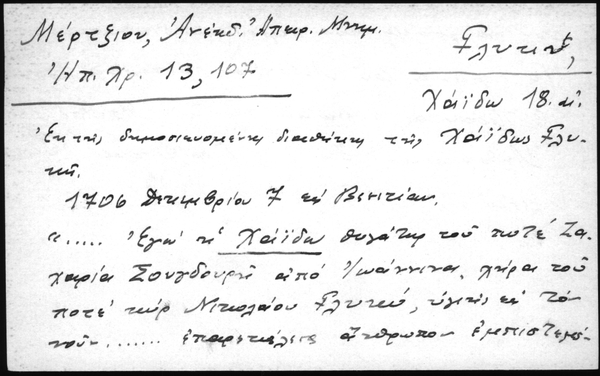 Μέρτζιου, Ἀνέκδ. Ἠπειρ. Μνημ.
Ἠπ. Χρ. 13, 107
Γλυκῆ,
Χάϊδω 18. αἰ.
Ἐκ τῆς δημοσιευομένης διαθήκης τῆς Χάϊδως Γλυ-
κῆ.
1706 Δεκεμβρίου 7 ἐν Βενετίαι.
«..... Ἐγώ ἡ Χάϊδω θυγάτηρ τοῦ ποτέ Ζα-
χαρία Σουγδουρῆ ἀπό Ἰωάννινα, χήρα τοῦ
ποτέ κύρ Νικολάου Γλυκέως, ὑγιής ἐν τό
νοῦν....... ἐπαρεκάλεσε ἄνθρωπον ἐμπιστεμέ-